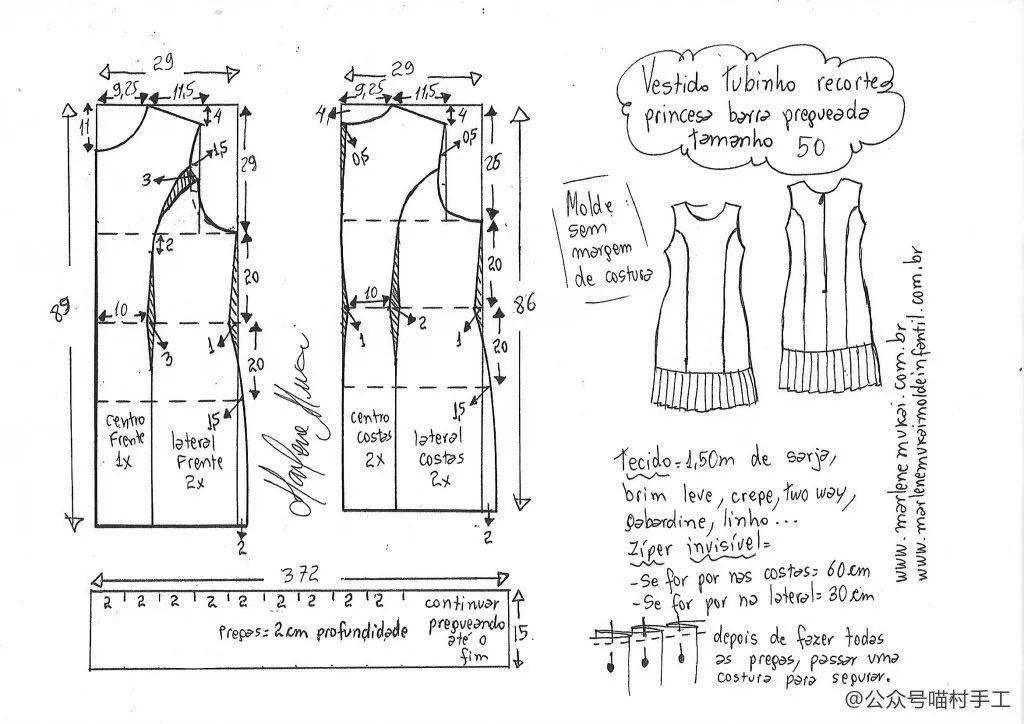 29
9,25
11,5
11
4
1,5
3
29
2
89
20
10
3
1
20
1,5
centro
Frente
1x
lateral
Frente
2x
2
29
9,25
11,5
4
4
0,5
0,5
26
20
10
2
1
1
86
20
1,5
centro
costas
2x
lateral
costas
2x
2
Marlene Mukai
Vestido Tubinho recortes
princesa barra pregueada
tamanho 50
Molde
sem
margem
de costura
www.marlenemukai.com.br
www.marlenemukaimoldeinfantil.com.br
Tecido = 1,50m de sarja,
brim leve, crepe, two way,
gabardine, linho...
Zíper invisível =
- Se for por nas costas = 60 cm
- Se for por na lateral = 30 cm
depois de fazer todas
as pregas, passar uma
costura para segurar.
372
2 2 2 2 2 2 2 2
continuar
pregueando
até o
fim
Pregas = 2 cm profundidade
15
@公众号喵村手工